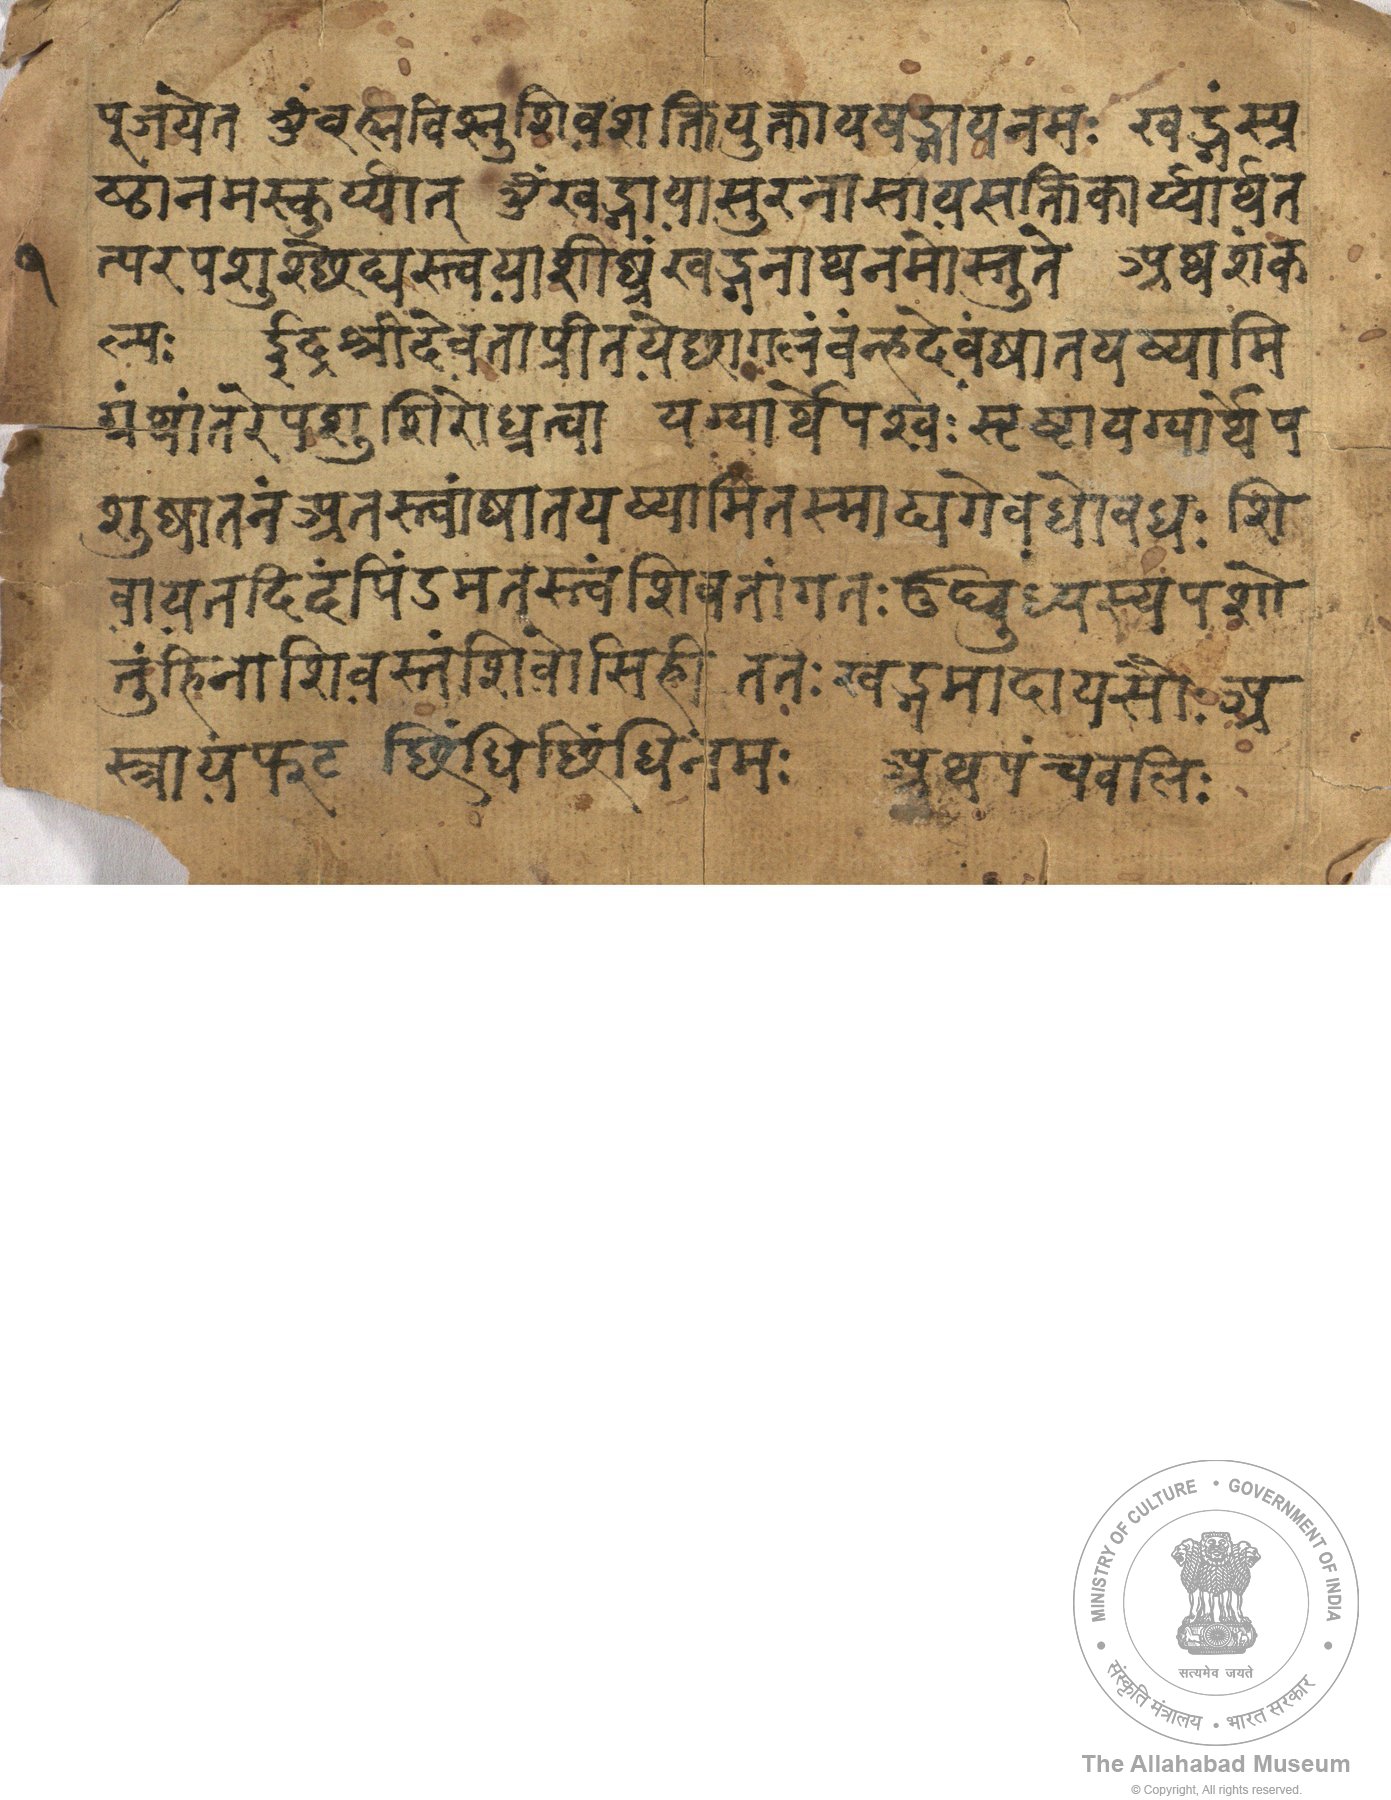 पूजयेत ॐ वह्मविश्नुशिवशक्तियुक्तायषड्गायनमः खड्गंस्पृ
ष्ठानमस्कुर्य्यात् ॐ खड्गायासुरनासायसक्तिकार्य्यार्थत
१
त्परपशुश्छेद्यस्त्वयाशीघ्रंखड्गनाथनमोस्तुते अथशंक
ल्पः श्रीदेवताप्रीतयेछागलंवंन्हदेवंघातयष्यामि
ग्रंथांतरेपशुशिरोधृत्वा यग्यार्थेपश्वः सृष्टायग्यार्थेप
शुघातनं अतस्त्वांघातयष्यामितस्माद्यगेवधोवधः शि
वायतदिदंपिंडमतस्त्वंशिवतांगतः उद्बुध्यस्यपशो
तुंहिनाशिवस्तंशिवोसिही ततः खड्गमादायसौः अ
स्त्रायफट छिंधिछिंधिनमः अथपंचवलिः
MINISTRY OF CULTURE • GOVERNMENT OF INDIA
सत्यमेव जयते
संस्कृति मंत्रालय • भारत सरकार
The Allahabad Museum
© Copyright, All rights reserved.